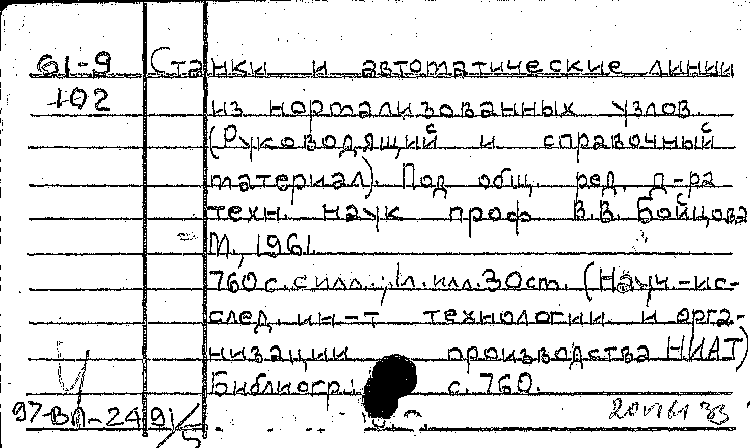 61-9 Станки и автоматические линии
102 из нормализованных узлов.
(Руководящий и справочный
материал). Под общ. ред. д-ра
техн. наук проф В.В. Бойцова
М., 1961.
760 с. с илл.; 1 л. илл. 30 см. (Науч.-ис-
след. ин-т технологии и орга-
низации производства НИАТ)
Библиогр.: с. 760.
97-ВП-24 91/5